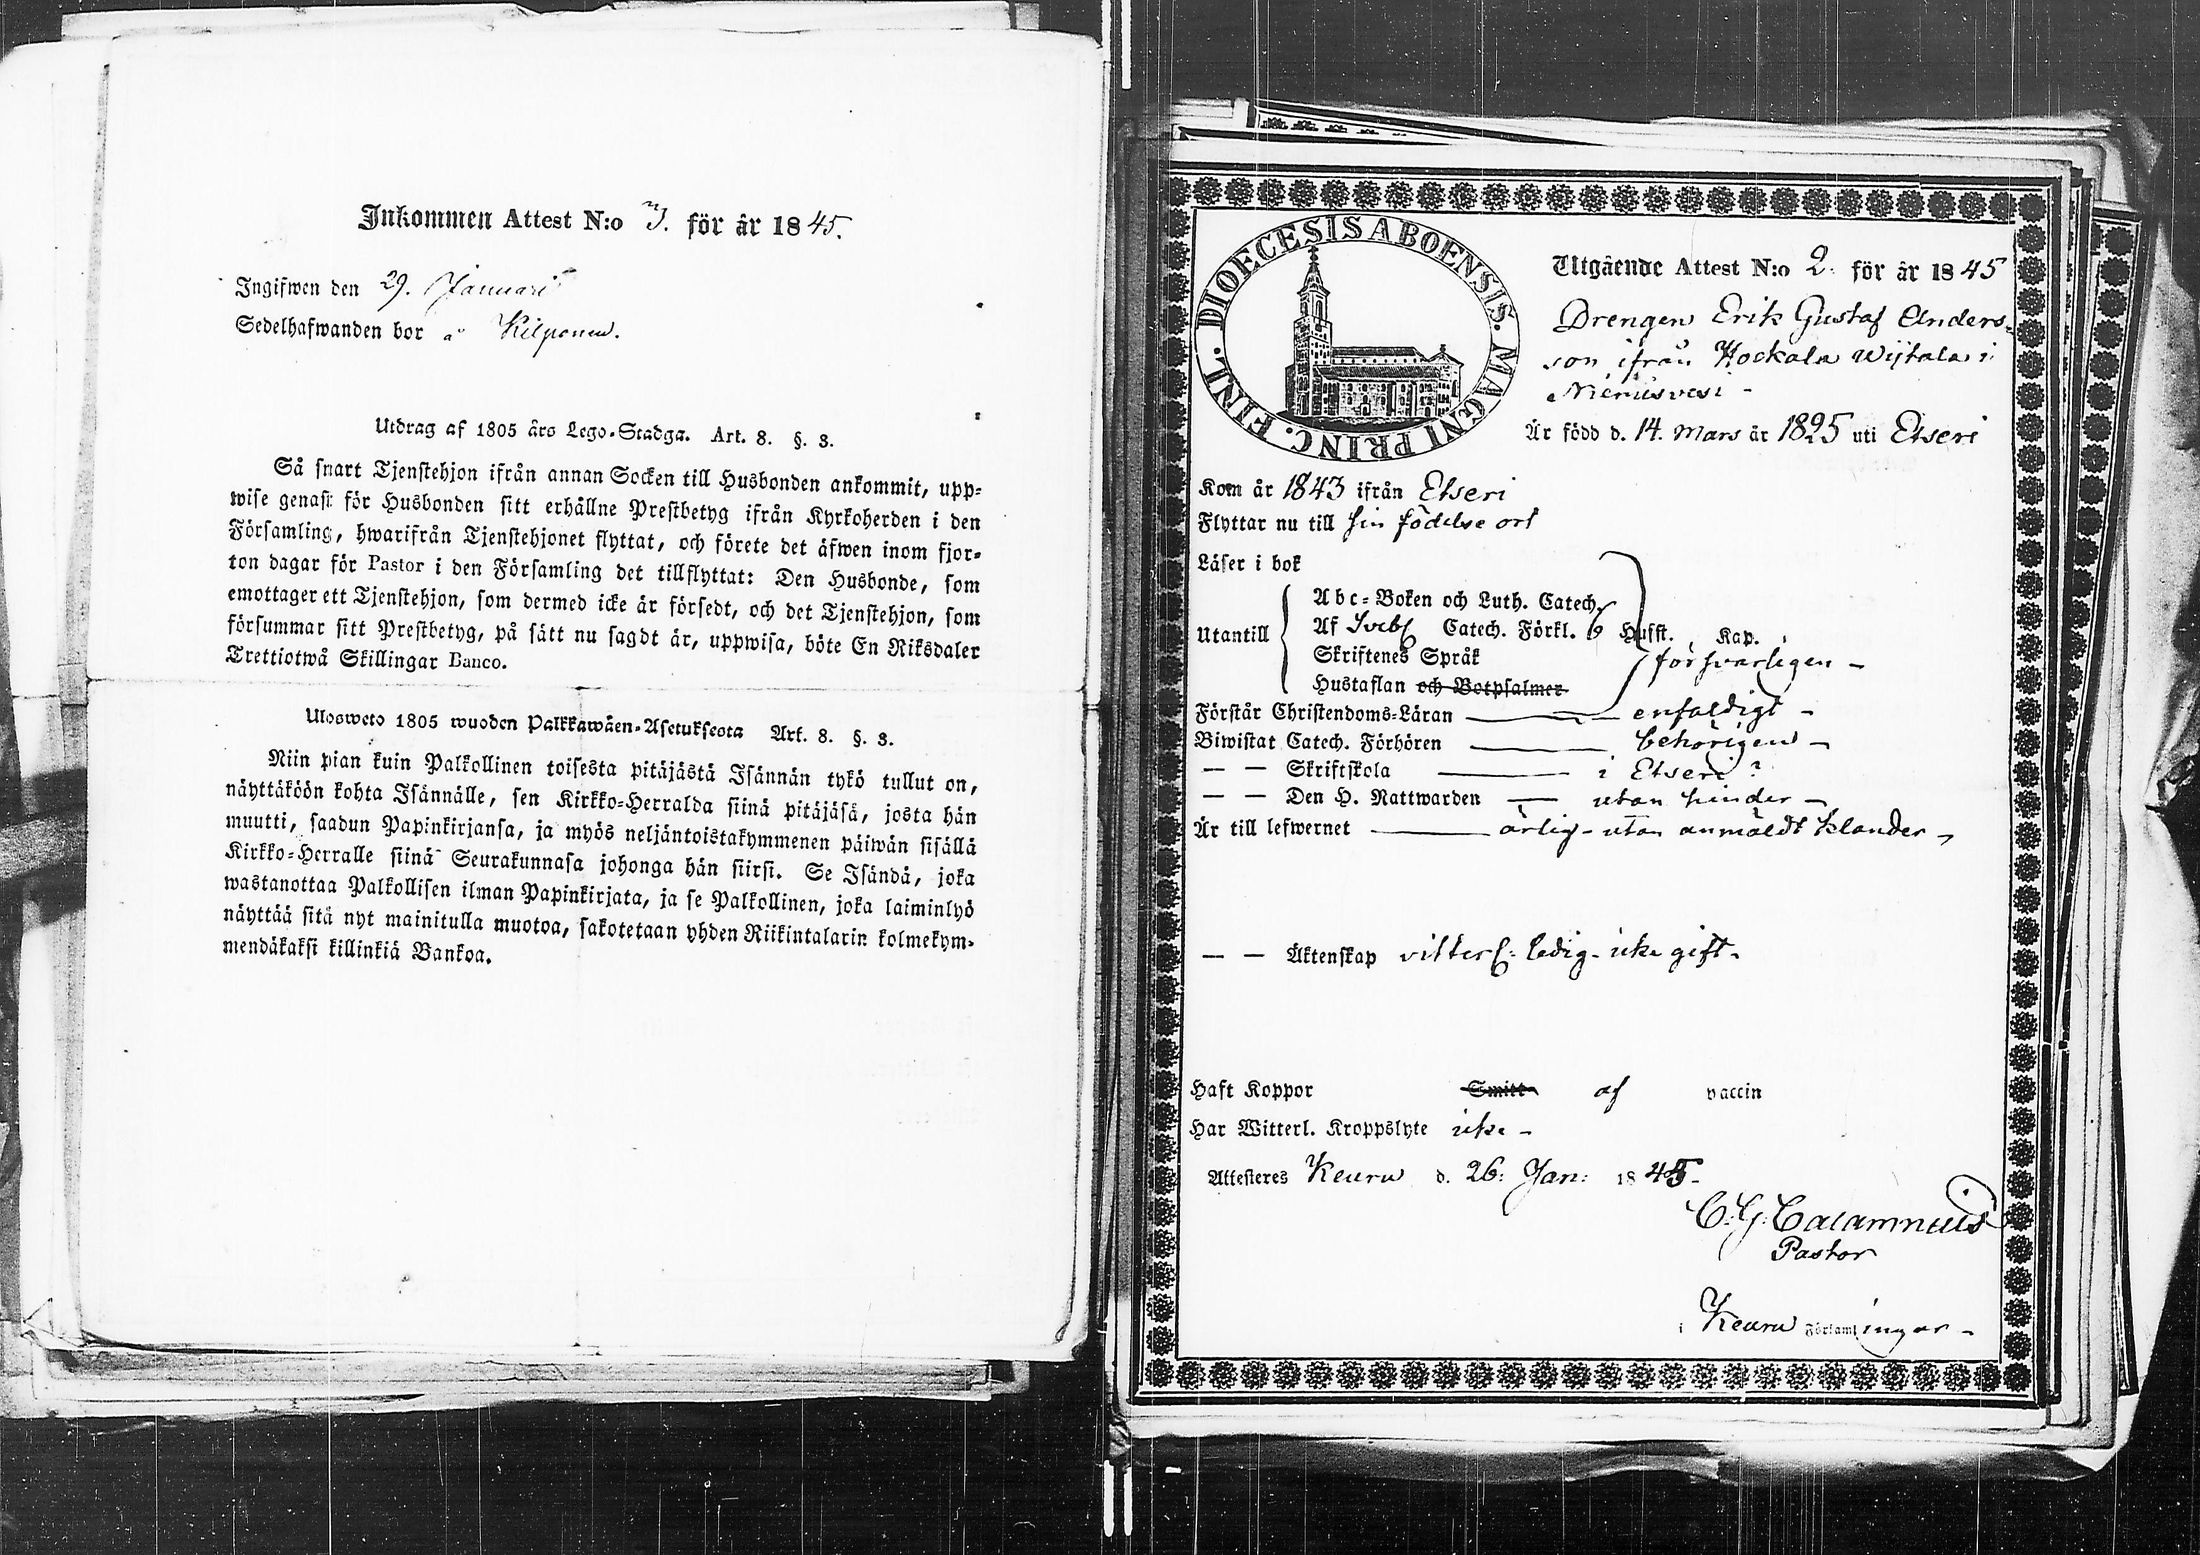 Inkommen Attest N:o 3. för år 1845.
Ingifwen den 29. Januari
Sedelhafwanden bor å Kilponen.
Utdrag af 1805 års Lego-Stadga. Art. 8. §. 3.
Så snart Tjenstehjon ifrån annan Socken till Husbonden ankommit, upp-
wise genast för Husbonden sitt erhållne Prestbetyg ifrån Kyrkoherden i den
Församling, hwarifrån Tjenstehjonet flyttat, och förete det äfwen inom fjor-
ton dagar för Pastor i den Församling det tillflyttat: Den Husbonde, som
emottager ett Tjenstehjon, som dermed icke är försedt, och det Tjenstehjon, som
försummar sitt Prestbetyg, på sätt nu sagdt är, uppwisa, böte En Riksdaler
Trettiotwå Skillingar Banco.
Ulosweto 1805 wuoden Palkkawäen-Asetuksesta Art. 8. §. 3.
Niin pian kuin Palkollinen toisesta pitäjästä Isännän tykö tullut on,
näyttäköön kohta Isännälle, sen Kirkko-Herralda siinä pitäjäsä, josta hän
muutti, saadun Papinkirjansa, ja myös neljäntoistakymmenen päiwän sisällä
Kirkko-Herralle siinä Seurakunnasa johonga hän siirsi. Se Isändä, joka
wastanottaa Palkollisen ilman Papinkirjata, ja se Palkollinen, joka laiminlyö
näyttää sitä nyt mainitulla muotoa, sakotetaan yhden Riikintalarin kolmekym-
mendäkaksi killinkiä Bankoa.
DIOECESIS ABOENSIS. MAGNI PRINC. FINL.
Utgående Attest N:o 2. för år 1845
Drengen Erik Gustaf Anders-
son ifrån Kockala Wijtala i
Niemisvesi -
Är född d. 14. Mars år 1825 uti Etseri
Kom år 1843 ifrån Etseri
Flyttar nu till sin födelse ort
Läser i bok
Abc-Boken och Luth. Catech.
Utantill Af Sveb Catech. Förkl. Husst. Kap.
Skriftenes Språk försvarligen -
Hustaflan och Botpsalmer
Förstår Christendoms-Läran enfaldigt -
Biwistat Catech. Förhören behörigen -
— — Skriftskola i Etseri?
— — Den H. Nattwarden utan hinder -
Är till lefwernet ärlig - utan anmäldt klander -
— — Äktenskap vitterl: ledig - icke gift -
Haft Koppor Smitt af vaccin
Har Witterl. Kroppslyte icke -
Attesteres Keuru d. 26: Jan: 1845 -
C. G. Calamnius
Pastor
i Keuru Församlingar -